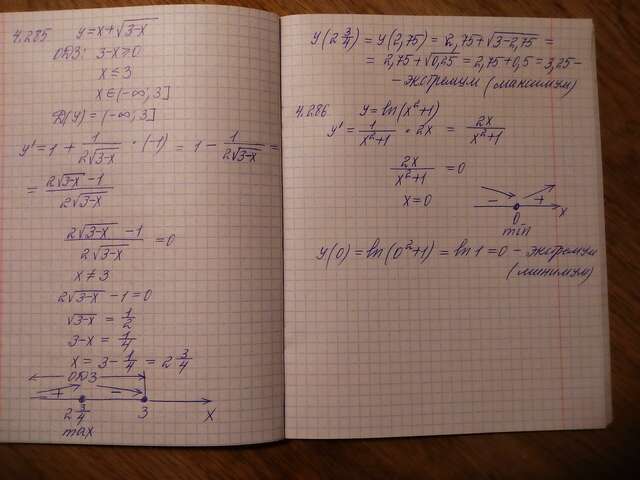 4.285 y=x+√3-x
ОДЗ: 3-x≥0
x≤3
x∈(-∞;3]
D(y)=(-∞;3]
y'=1+1/(2√3-x)·(-1)=1-1/(2√3-x)=
=(2√3-x-1)/(2√3-x)
(2√3-x-1)/(2√3-x)=0
x≠3
2√3-x-1=0
√3-x=1/2
3-x=1/4
x=3-1/4=2 3/4
ОДЗ
+ -
2 3/4 3 x
max
y(2 3/4)=y(2,75)=2,75+√3-2,75=
=2,75+√0,25=2,75+0,5=3,25-
-экстремум (максимум)
4.286 y=ln(x²+1)
y'=1/(x²+1)·2x=2x/(x²+1)
2x/(x²+1)=0
x=0
- +
0 x
min
y(0)=ln(0²+1)=ln1=0-экстремум
(минимум)